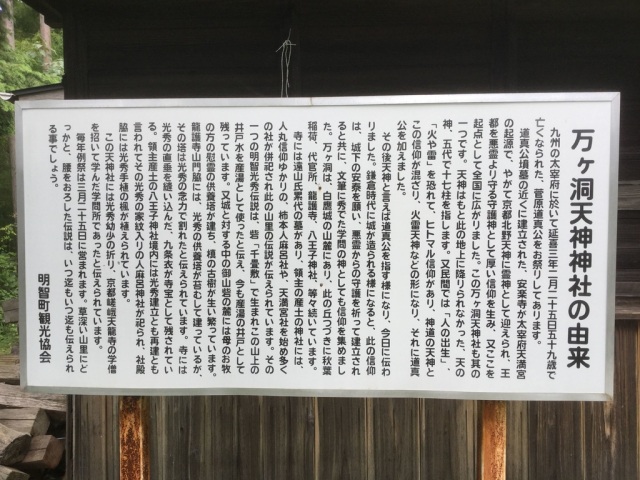 万ヶ洞天神神社の由来
九州の太宰府に於いて延喜三年二月二十五日五十九歳で
亡くなられた、菅原道真公をお祭りしてあります。
道真公墳墓の近くに建立された、安楽寺が太宰府天満宮
の起源で、やがて京都北野天神に雷神として迎えられ、王
都を悪霊より守る守護神として厚い信仰を生み、又ここを
起点として全国に広がりました。この万ヶ洞天神社も其の
一つです。天神はもと此の地上に降りられなかった、天の
神、五代で十七柱を指します。又民間では「人の出生」、
「火や雷」を恐れて、ヒトマル信仰があり、神道の天神と
この信仰が混ざり、火雷天神などの形になり、それに道真
公を加えました。
その後天神と言えば道真公を指す様になり、今日に伝わ
りました。鎌倉時代に城が造られる様になると、此の信仰
は、城下の安泰を願い、悪霊からの守護を祈って建立され
ると共に、文筆に秀でた学問の神としても信仰を集めまし
た。万ヶ洞は、白鷹城の山麓にあり、此の丘つづきに秋葉
稲荷、代官所、龍護寺、八王子神社、等々続いています。
寺には遠山氏累代の墓があり、領主の産土の神社には、
人丸信仰ゆかりの、柿本人麻呂社や、天満宮社を始め多く
の社が併記され此の山里の伝説が伝えられています。その
一つの明智光秀伝説は、砦「千畳敷」で生まれこの山上の
井戸水を産湯として使ったと伝え、今も産湯の井戸として
残っています。又城と対する中の御山砦の麓には母のお牧
の方の慰霊の供養塔が建ち、槙の古樹が生い繁っています。
龍護寺山門脇には、光秀の供養塔が苔むして建っているが、
その塔は光秀の念力で割れたと伝えられています。寺には
光秀の直垂を縫い込んだ、九条衣が寺宝として残されてい
る。領主産土の八王子神社境内には光秀建立とも再建とも
言われてその光秀の家紋入りの人麻呂神社が祀られ、社殿
脇には光秀手植の楓が植えられています。
この天神社には光秀幼少の折り、京都嵯峨天龍寺の学僧
を招いて学んだ学問所であったと伝えられています。
毎年例祭は三月二十五日に営まれます。草深い山里にど
っかと、腰をおろした伝説は、いつ迄もいつ迄も伝えられ
る事でしょう。
明智町観光協会